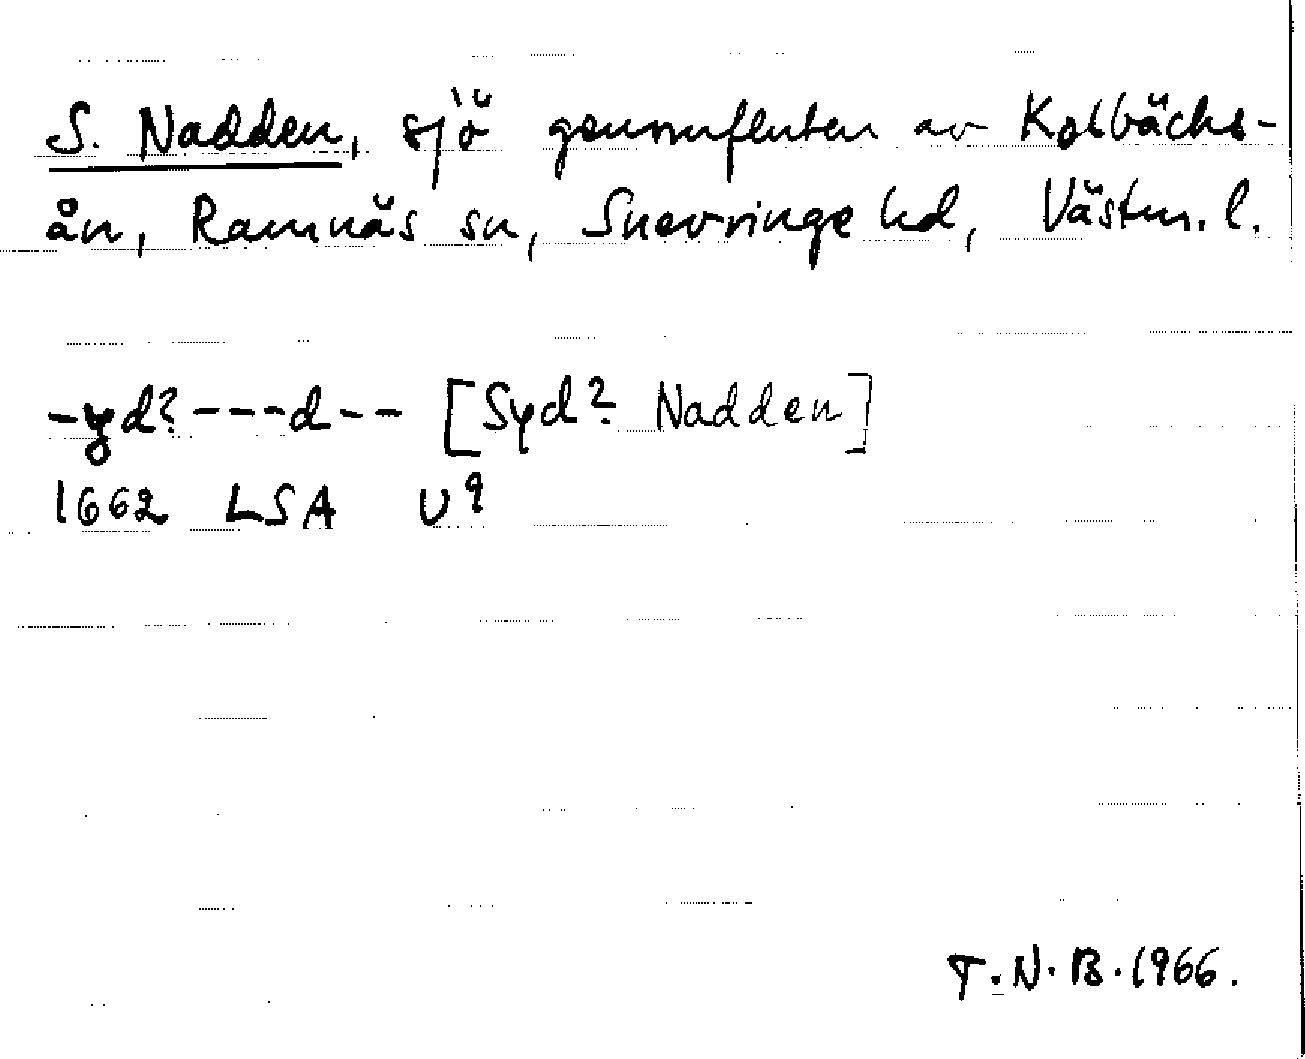 S. Nadden, sjö genomfluten av Kolbäcks-
ån, Ramnäs sn, Snevringe hd, Västm. l.
-yd?---d-- [Syd? Nadden]
1662 LSA U9
T.N.B.1966.